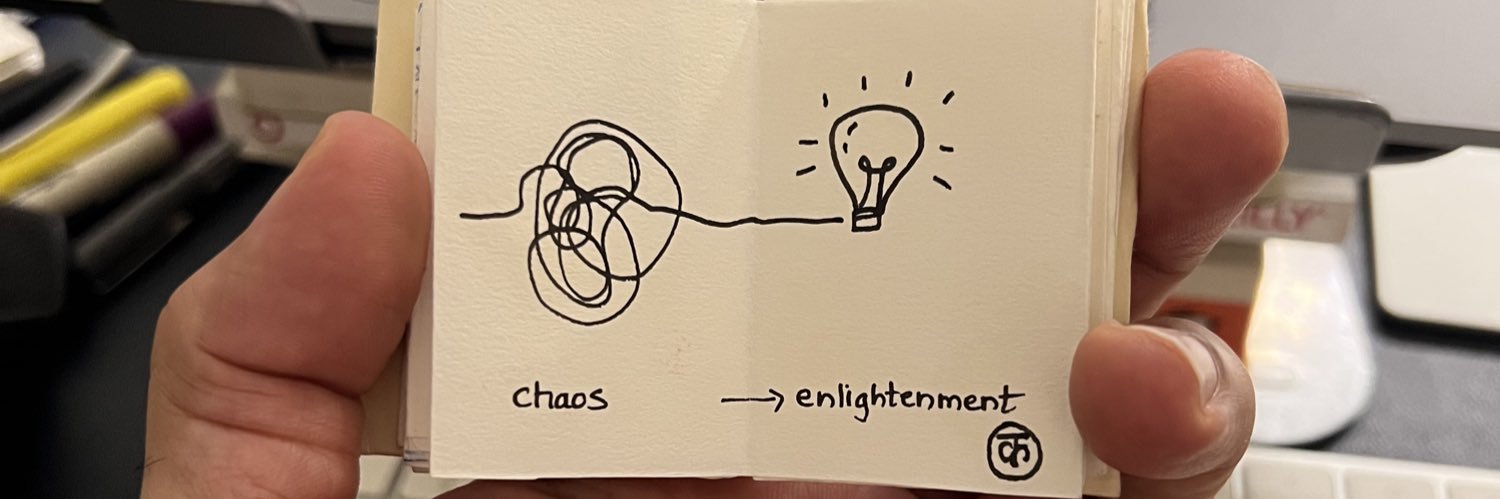 chaos → enlightenment
क